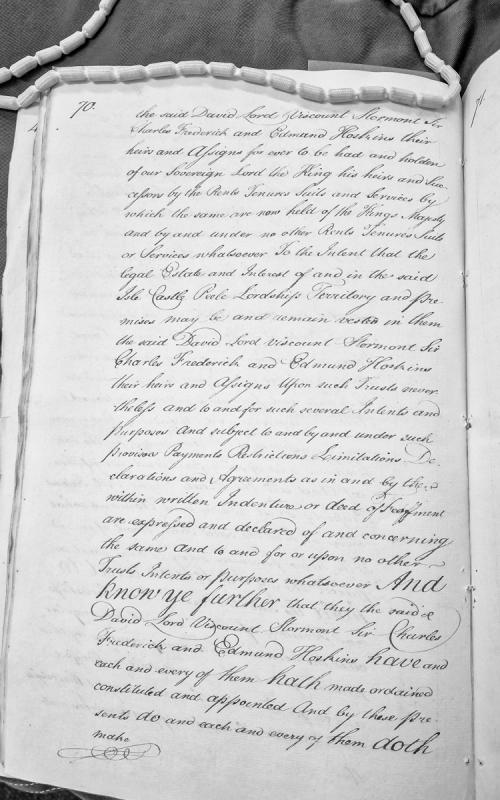 70.
the said David Lord Viscount Stormont Sir
Charles Frederick and Edmund Hoskins their
heirs and Assigns for ever to be had and holden
of our Sovereign Lord the King his heirs and Suc-
cessors by the Rents Tenures Suits and Services by
which the same are now held of the Kings Majesty
and by and under no other Rents Tenures Suits
or Services whatsoever To the Intent that the
legal Estate and Interest of and in the said
Isle Castle Peele Lordship Territory and Pre-
mises may be and remain vested in them
the said David Lord Viscount Stormont Sir
Charles Frederick and Edmund Hoskins
their heirs and Assigns Upon such Trusts never
theless and to and for such several Intents and
Purposes and subject to and by and under such
Provisoes Payments Restrictions Limitations De-
clarations and Agreements as in and by the
within written Indenture or deed of Feoffment
are expressed and declared of and concerning
the same and to and for or upon no other
Trusts Intents or Purposes whatsoever And
know ye further that they the said
David Lord Viscount Stormont Sir Charles
Frederick and Edmund Hoskins have and
each and every of them hath made ordained
constituted and appointed And by these Pre-
sents do and each and every of them doth
make